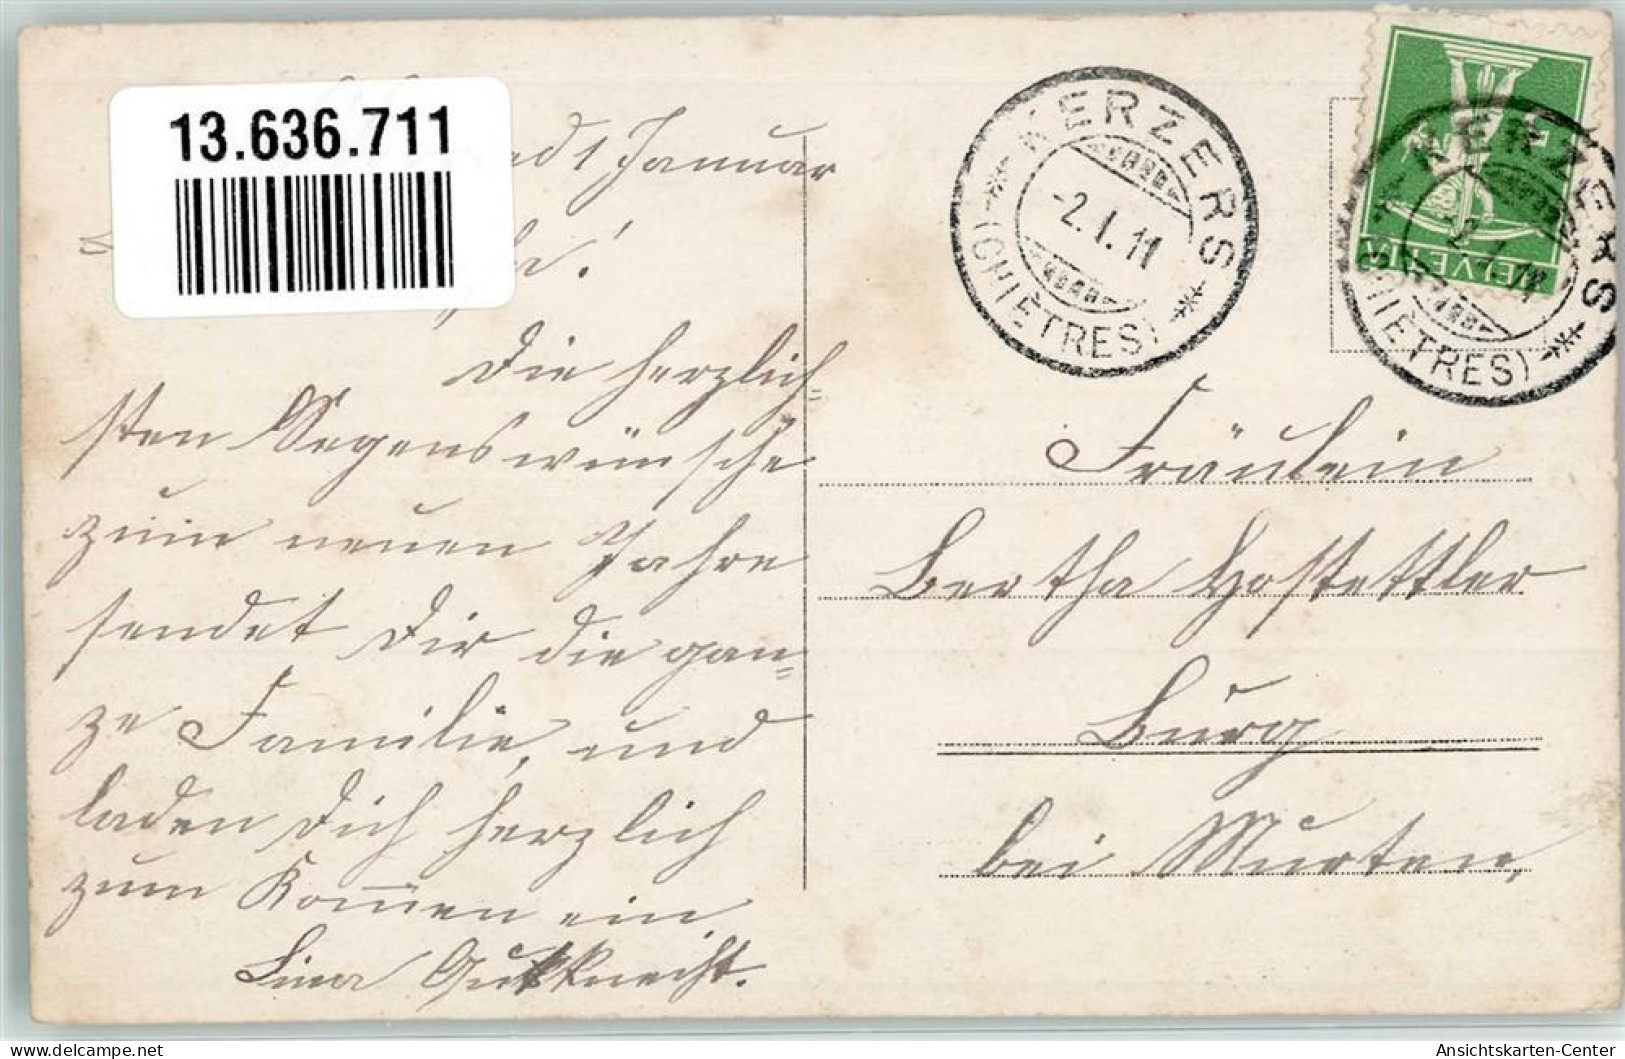 13.636.711
1 Januar
Die herzlich=
sten Segenswünsche
zum neuen Jahre
sendet Dir die gan=
ze Familie, und
laden Dich herzlich
zum Kommen ein
Lina Gutknecht.
KERZERS
-2.I.11
(CHIÈTRES)
HELVETIA
KERZERS
(CHIÈTRES)
Fräulein
Bertha Hostettler
Burg
bei Murten,
www.oldthing.de
Ansichtskarten-Center